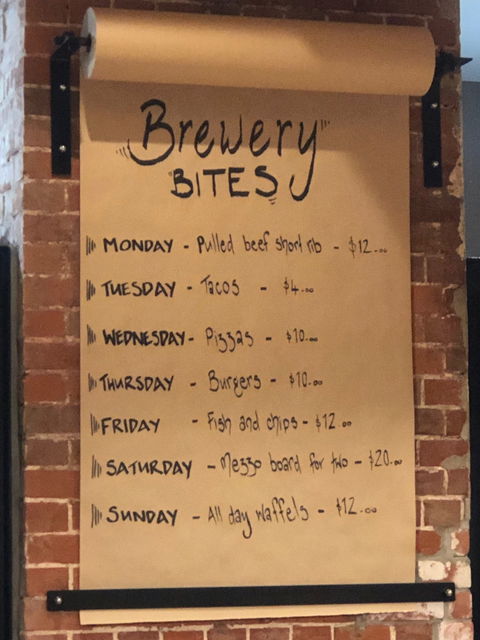 Brewery
BITES
MONDAY - Pulled beef short rib - $12.00
TUESDAY - Tacos - $4.00
WEDNESDAY - Pizzas - $10.00
THURSDAY - Burgers - $10.00
FRIDAY - Fish and chips - $12.00
SATURDAY - Mezzo board for two - $20.00
SUNDAY - All day waffels - $12.00